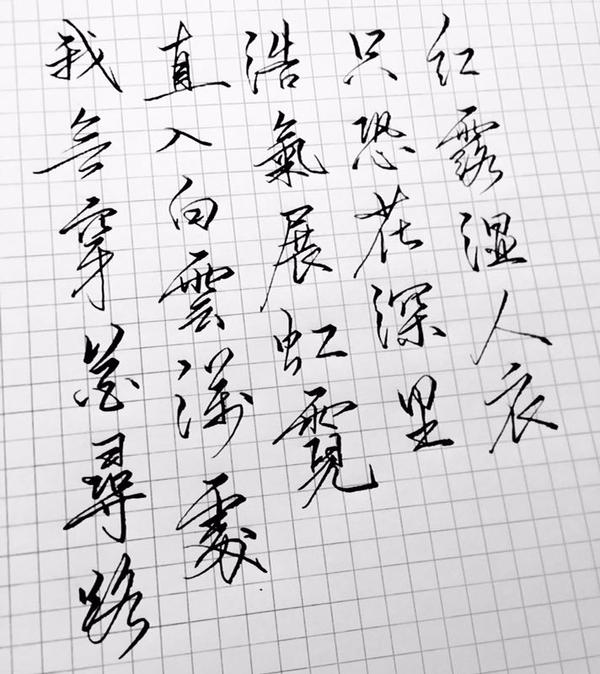 我無穿花尋路
直入白雲深處
浩氣展虹霓
只恐花深里
红露湿人衣